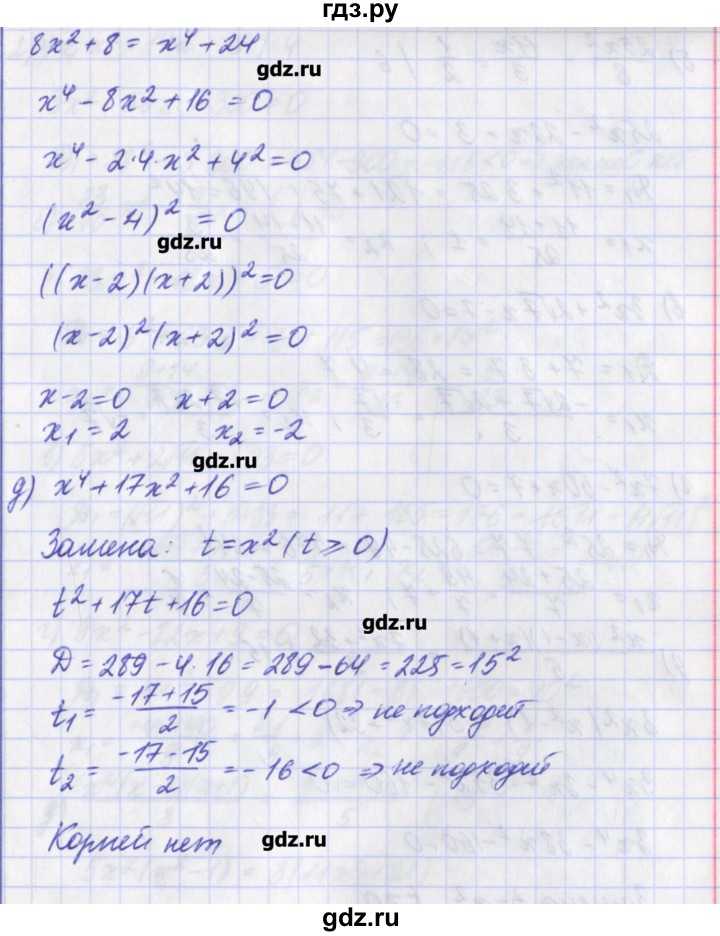 гдз.ру
8x² + 8 = x⁴ + 24
gdz.ru
x⁴ - 8x² + 16 = 0
x⁴ - 2·4·x² + 4² = 0
(x² - 4)² = 0
gdz.ru
((x-2)(x+2))² = 0
(x-2)²(x+2)² = 0
x-2=0 x+2=0
x₁ = 2 x₂ = -2
gdz.ru
д) x⁴ + 17x² + 16 = 0
Замена: t = x² (t ⩾ 0)
t² + 17t + 16 = 0
gdz.ru
D = 289 - 4·16 = 289 - 64 = 225 = 15²
t₁ = (-17+15)/2 = -1 < 0 ⇒ не подходит
t₂ = (-17-15)/2 = -16 < 0 ⇒ не подходит
Корней нет
gdz.ru
gdz.ru